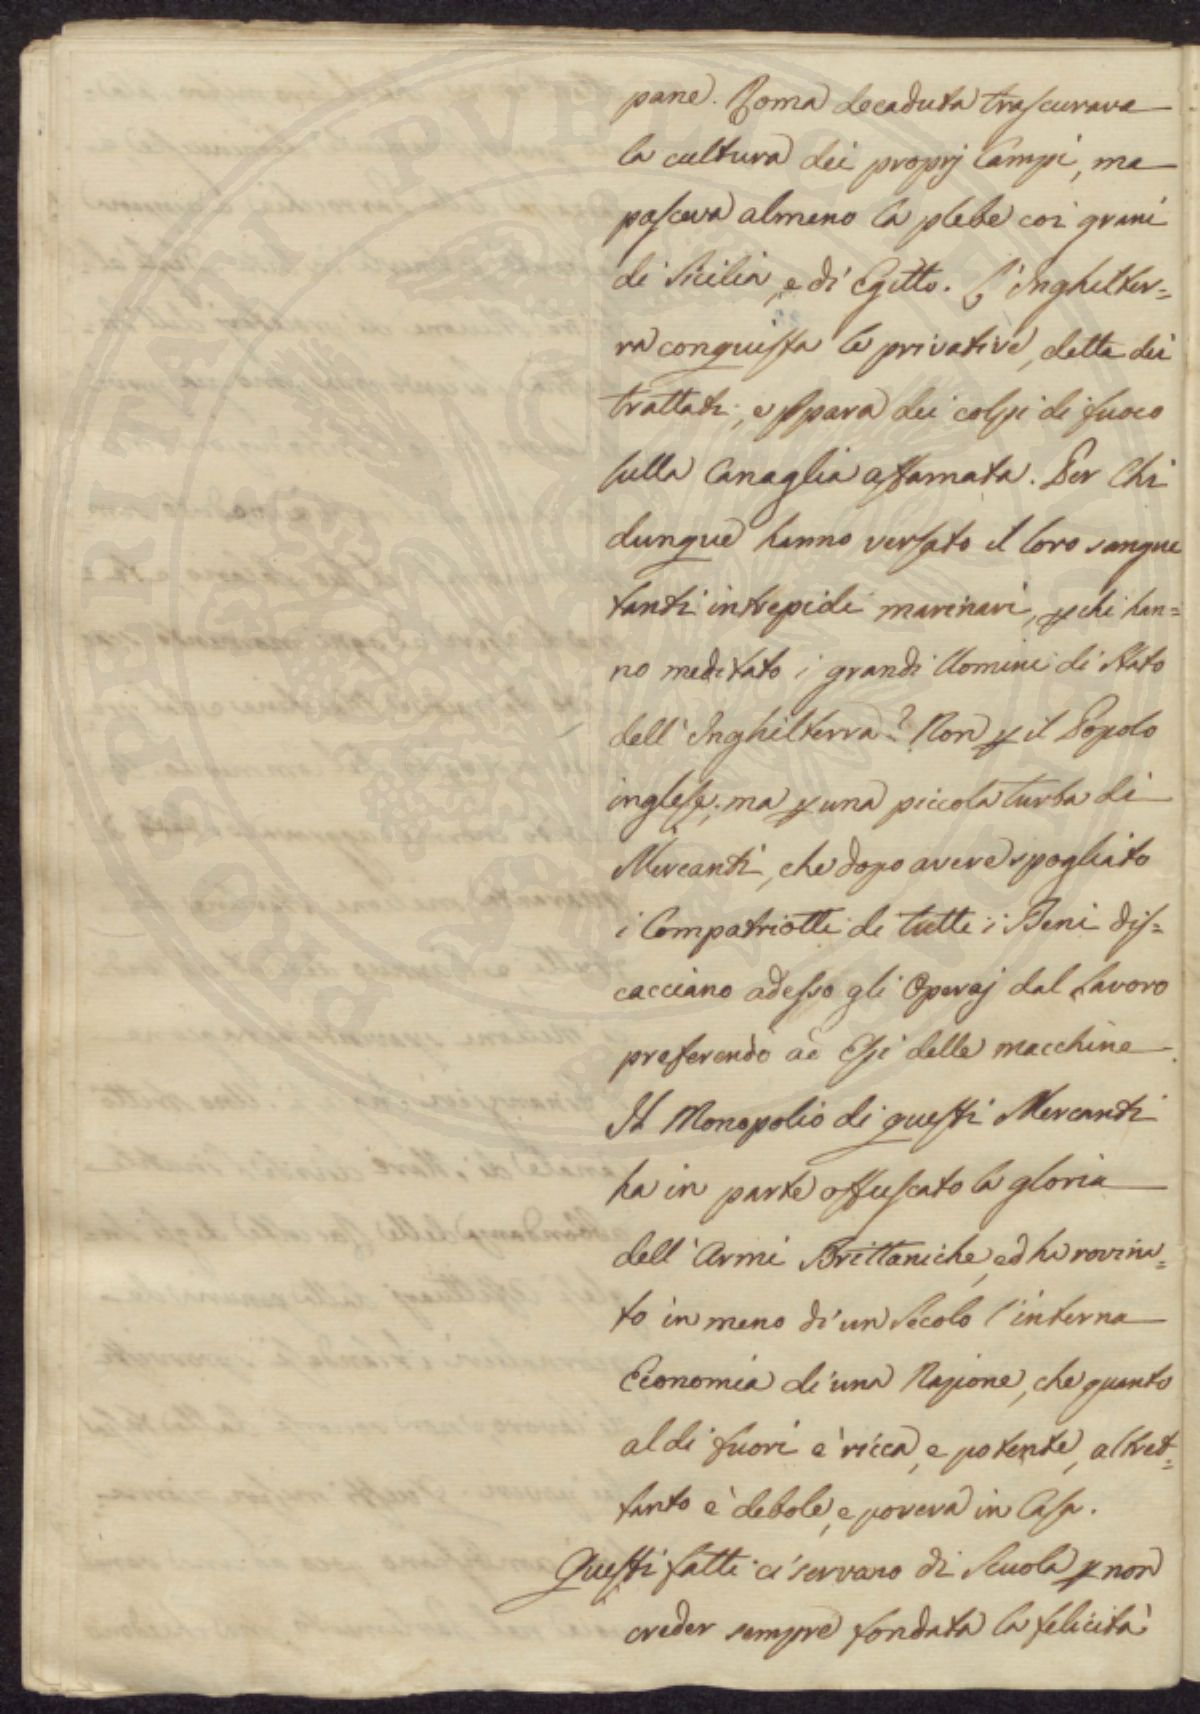 pane. Roma decaduta trascurava
la cultura dei proprj Campi, ma
pasceva almeno la plebe coi grani
di Sicilia, e di Egitto. L'Inghilter=
ra conquista le privative, detta dei
trattati, e spara dei colpi di fuoco
sulla Canaglia affamata. Per Chi
dunque hanno versato il loro sangue
tanti intrepidi marinari, p chi han=
no meditato i grandi Uomini di Stato
dell'Inghilterra? Non p il Popolo
inglese; ma p una piccola turba di
Mercanti, che dopo avere spogliato
i Compatriotti di tutti i Beni dis=
cacciano adesso gli Operaj dal Lavoro
preferendo ad Essi delle macchine.
Il Monopolio di questi Mercanti
ha in parte offuscato la gloria
dell'Armi Brittaniche, ed ha rovina=
to in meno di un Secolo l'interna
Economia di una Nazione, che quanto
al di fuori è ricca, e potente, altret=
tanto è debole, e povera in Casa.
Questi fatti ci servano di Scuola p non
creder sempre fondata la felicità
PROSPERITATI PVBLICAE